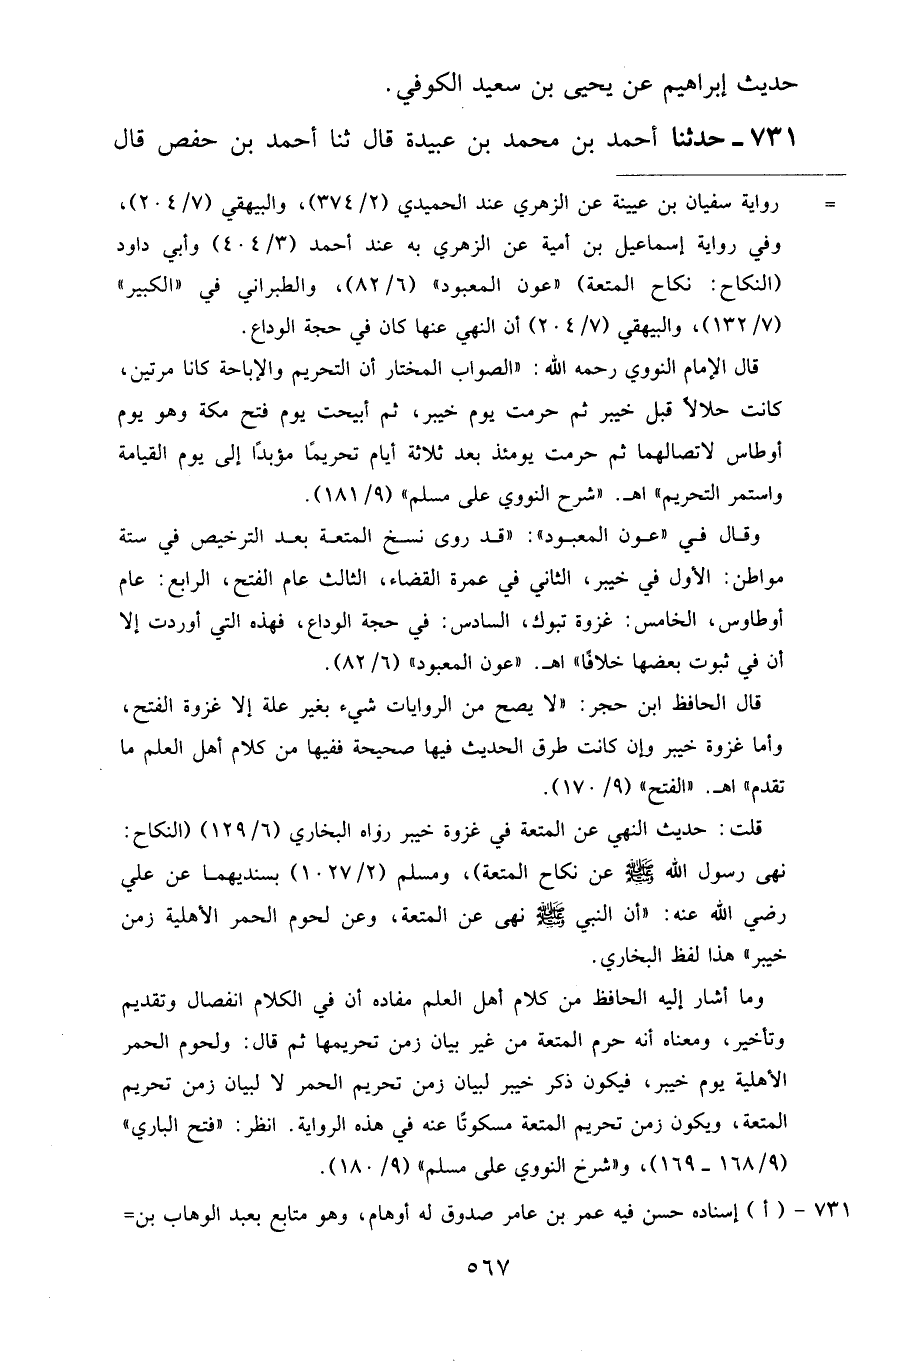 حديث إبراهيم عن يحيى بن سعيد الكوفي.
٧٣١ ـ حدثنا أحمد بن محمد بن عبيدة قال ثنا أحمد بن حفص قال
= رواية سفيان بن عيينة عن الزهري عند الحميدي (٣٧٤/٢)، والبيهقي (٢٠٤/٧)،
وفي رواية إسماعيل بن أمية عن الزهري به عند أحمد (٤٠٤/٣) وأبي داود
(النكاح: نكاح المتعة) «عون المعبود» (٨٢/٦)، والطبراني في «الكبير»
(١٣٢/٧)، والبيهقي (٢٠٤/٧) أن النهي عنها كان في حجة الوداع.
قال الإمام النووي رحمه الله: «الصواب المختار أن التحريم والإباحة كانا مرتين،
كانت حلالاً قبل خيبر ثم حرمت يوم خيبر، ثم أبيحت يوم فتح مكة وهو يوم
أوطاس لاتصالهما ثم حرمت يومئذ بعد ثلاثة أيام تحريمًا مؤبدًا إلى يوم القيامة
واستمر التحريم» اهـ. «شرح النووي على مسلم» (١٨١/٩).
وقال في «عون المعبود»: «قد روى نسخ المتعة بعد الترخيص في ستة
مواطن: الأول في خيبر، الثاني في عمرة القضاء، الثالث عام الفتح، الرابع: عام
أوطاوس، الخامس: غزوة تبوك، السادس: في حجة الوداع، فهذه التي أوردت إلا
أن في ثبوت بعضها خلافًا» اهـ. «عون المعبود» (٨٢/٦).
قال الحافظ ابن حجر: «لا يصح من الروايات شيء بغير علة إلا غزوة الفتح،
وأما غزوة خيبر وإن كانت طرق الحديث فيها صحيحة ففيها من كلام أهل العلم ما
تقدم» اهـ. «الفتح» (١٧٠/٩).
قلت: حديث النهي عن المتعة في غزوة خيبر رواه البخاري (١٢٩/٦) (النكاح:
نهى رسول الله ﷺ عن نكاح المتعة)، ومسلم (١٠٢٧/٢) بسنديهما عن علي
رضي الله عنه: «أن النبي ﷺ نهى عن المتعة، وعن لحوم الحمر الأهلية زمن
خيبر» هذا لفظ البخاري.
وما أشار إليه الحافظ من كلام أهل العلم مفاده أن في الكلام انفصال وتقديم
وتأخير، ومعناه أنه حرم المتعة من غير بيان زمن تحريمها ثم قال: ولحوم الحمر
الأهلية يوم خيبر، فيكون ذكر خيبر لبيان زمن تحريم الحمر لا لبيان زمن تحريم
المتعة، ويكون زمن تحريم المتعة مسكوتًا عنه في هذه الرواية. انظر: «فتح الباري»
(١٦٨/٩ ـ ١٦٩)، و«شرخ النووي على مسلم» (١٨٠/٩).
٧٣١ - (أ) إسناده حسن فيه عمر بن عامر صدوق له أوهام، وهو متابع بعبد الوهاب بن=
٥٦٧